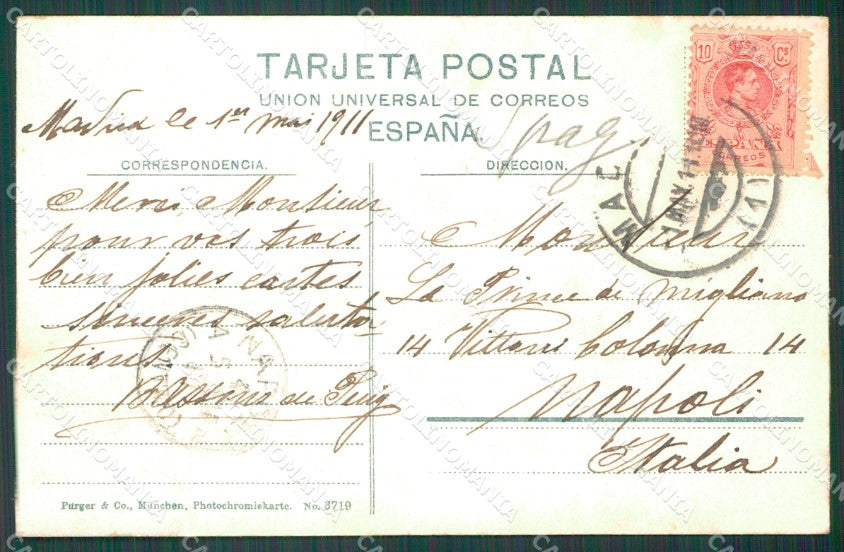 TARJETA POSTAL
UNION UNIVERSAL DE CORREOS
ESPAÑA
10 Cs
Madrid le 1er mai 1911
CORRESPONDENCIA.
Merci, Monsieur
pour vos trois
bien jolies cartes
sinceres saluta-
tions
de Puig
DIRECCION.
Monsieur
Le Prince de Migliano
14 Vittoria Colonna 14
Napoli
Italia
Purger & Co., München, Photochromiekarte. No. 3719
CARTOLINOMANIA